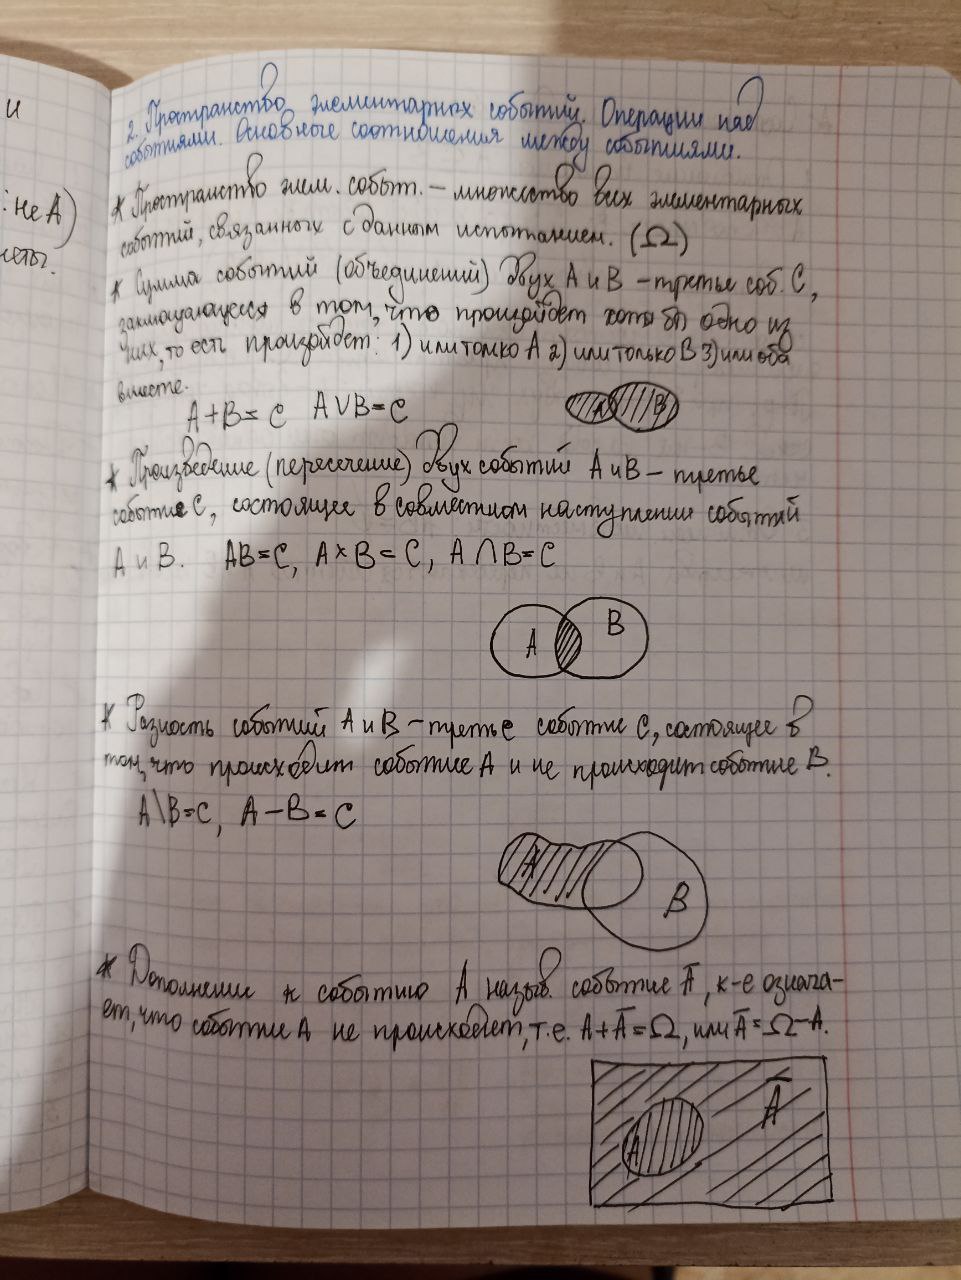 и
: не А)
неты.
2. Пространство элементарных событий. Операции над
событиями. Основные соотношения между событиями.
* Пространство элем. событ. – множество всех элементарных
событий, связанных с данным испытанием. (Ω)
* Сумма событий (объединений) двух А и В – третье соб. С,
заключающееся в том, что произойдет хотя бы одно из
них, то есть произойдет: 1) или только А 2) или только В 3) или оба
вместе.
A+B=C A∨B=C
A B
* Произведение (пересечение) двух событий А и В – третье
событие С, состоящее в совместном наступлении событий
А и В. AB=C, A×B=C, A∩B=C
A B
* Разность событий А и В – третье событие С, состоящее в
том, что происходит событие А и не происходит событие В.
A\B=C, A–B=C
A
B
* Дополнение к событию А назыв. событие Ā, к-е означа-
ет, что событие А не происходит, т.е. A+Ā=Ω, или Ā=Ω–A.
Ā
A